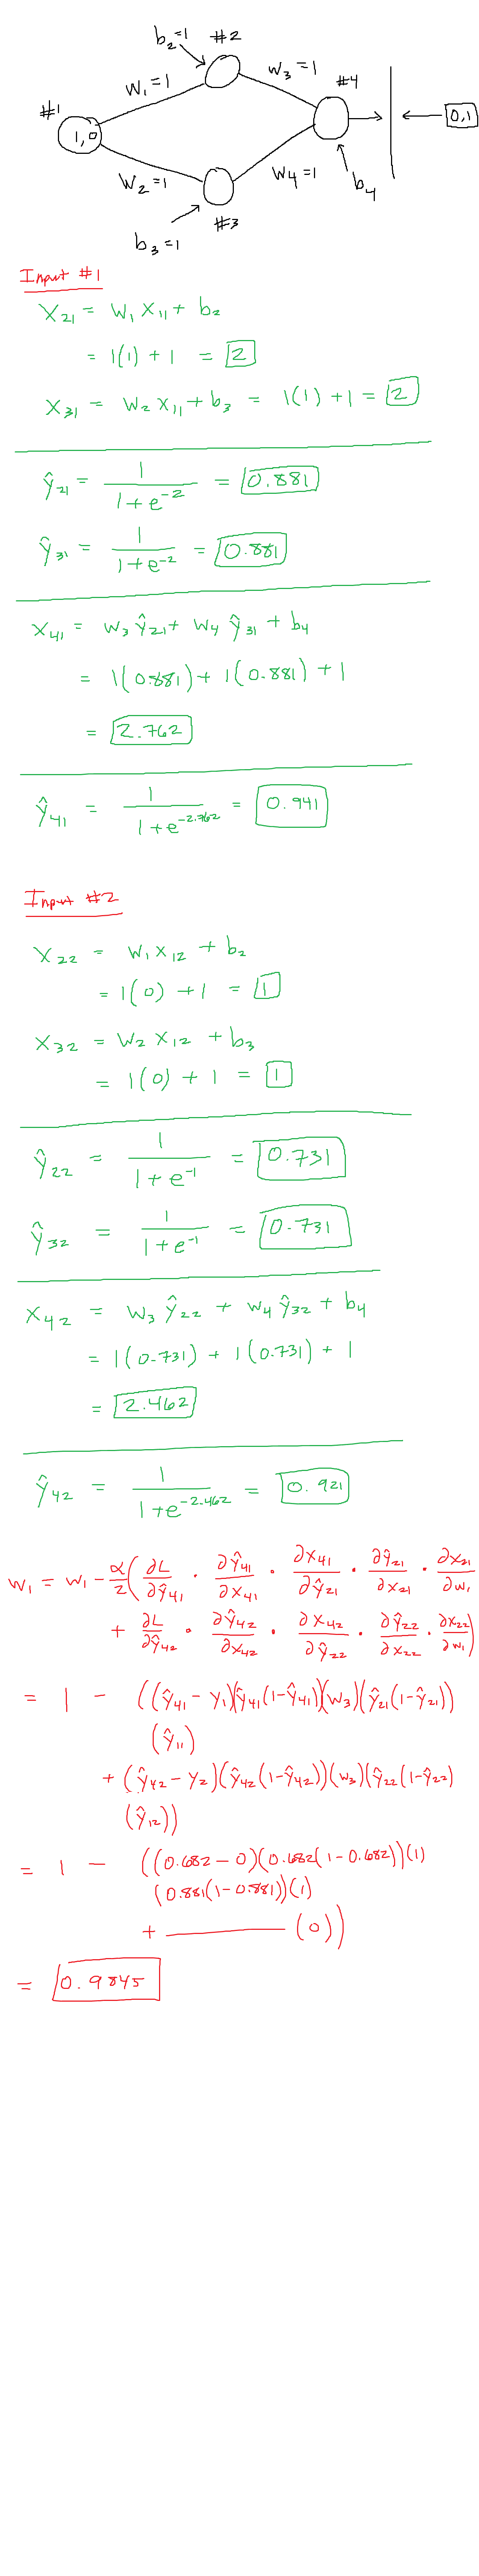 b₂=1 #2
w₁=1 w₃=1 #4
#1
1,0 0,1
w₂=1 w₄=1 b₄
b₃=1 #3
Input #1
x₂₁ = w₁ x₁₁ + b₂
= 1(1) + 1 = 2
x₃₁ = w₂ x₁₁ + b₃ = 1(1) + 1 = 2
ŷ₂₁ = 1/(1+e⁻²) = 0.881
ŷ₃₁ = 1/(1+e⁻²) = 0.881
x₄₁ = w₃ ŷ₂₁ + w₄ ŷ₃₁ + b₄
= 1(0.881) + 1(0.881) + 1
= 2.762
ŷ₄₁ = 1/(1+e^(-2.762)) = 0.941
Input #2
x₂₂ = w₁ x₁₂ + b₂
= 1(0) + 1 = 1
x₃₂ = w₂ x₁₂ + b₃
= 1(0) + 1 = 1
ŷ₂₂ = 1/(1+e⁻¹) = 0.731
ŷ₃₂ = 1/(1+e⁻¹) = 0.731
x₄₂ = w₃ ŷ₂₂ + w₄ ŷ₃₂ + b₄
= 1(0.731) + 1(0.731) + 1
= 2.462
ŷ₄₂ = 1/(1+e^(-2.462)) = 0.921
w₁ = w₁ - α/2 (∂L/∂ŷ₄₁ · ∂ŷ₄₁/∂x₄₁ · ∂x₄₁/∂ŷ₂₁ · ∂ŷ₂₁/∂x₂₁ · ∂x₂₁/∂w₁
+ ∂L/∂ŷ₄₂ · ∂ŷ₄₂/∂x₄₂ · ∂x₄₂/∂ŷ₂₂ · ∂ŷ₂₂/∂x₂₂ · ∂x₂₂/∂w₁)
= 1 - ((ŷ₄₁ - y₁)(ŷ₄₁(1-ŷ₄₁))(w₃)(ŷ₂₁(1-ŷ₂₁))
(ŷ₁₁)
+ (ŷ₄₂ - y₂)(ŷ₄₂(1-ŷ₄₂))(w₃)(ŷ₂₂(1-ŷ₂₂)
(ŷ₁₂))
= 1 - ((0.682 - 0)(0.682(1-0.682))(1)
(0.881(1-0.881))(1)
+ ———— (0))
= 0.9845